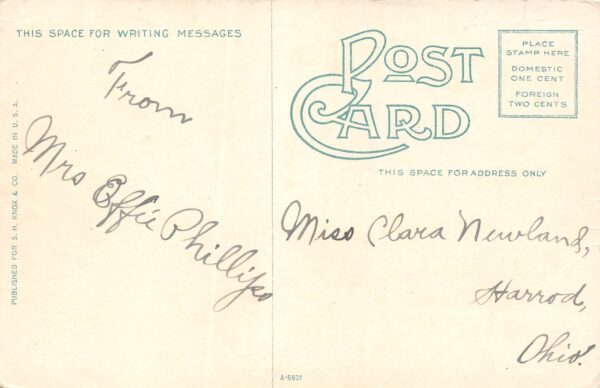 THIS SPACE FOR WRITING MESSAGES
From
Mrs Effie Phillips
PUBLISHED FOR S. H. KNOX & CO. MADE IN U. S. A.
POST
CARD
THIS SPACE FOR ADDRESS ONLY
PLACE
STAMP HERE
DOMESTIC
ONE CENT
FOREIGN
TWO CENTS
Miss Clara Newland,
Harrod,
Ohio.
A-5631